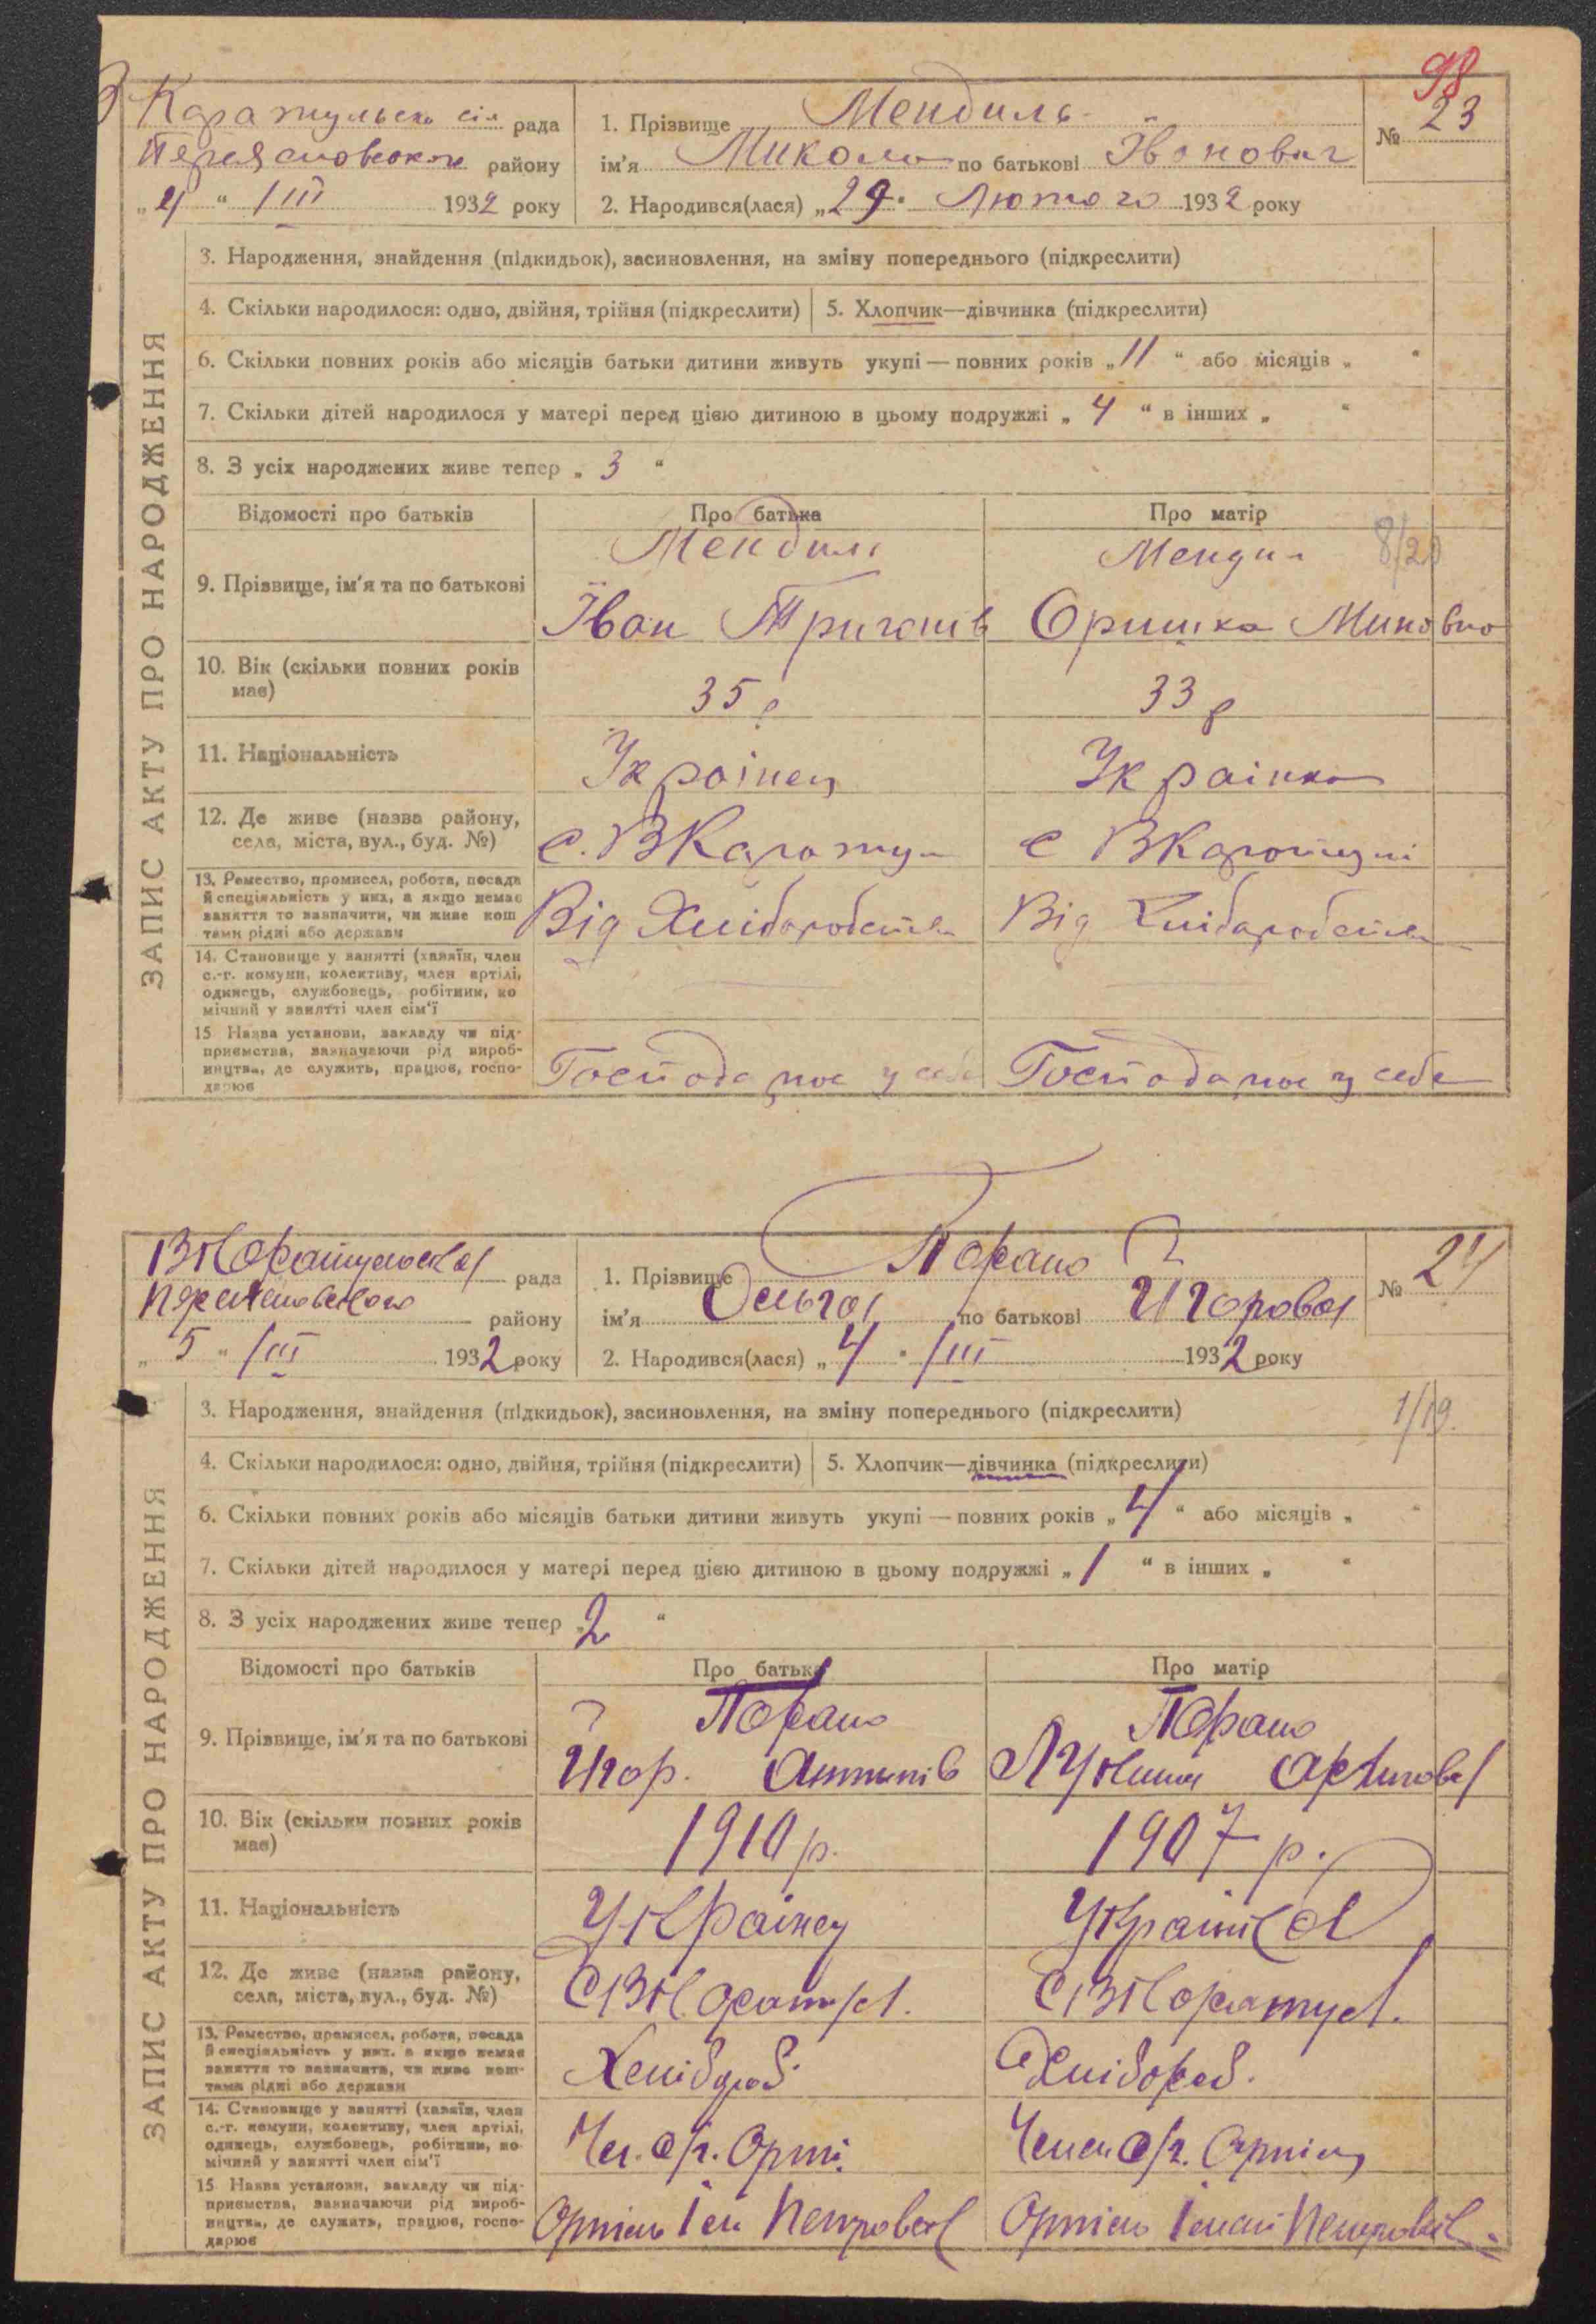 98
Каратульська сіл рада
Переяславського району
"4" /III 1932 року
1. Прізвище Мендиль
ім'я Микола по батькові Іванович
№ 23
2. Народився(лася) „29" Лютого 1932 року
ЗАПИС АКТУ ПРО НАРОДЖЕННЯ
3. Народження, знайдення (підкидьок), засиновлення, на зміну попереднього (підкреслити)
4. Скільки народилося: одно, двійня, трійня (підкреслити) 5. Хлопчик—дівчинка (підкреслити)
6. Скільки повних років або місяців батьки дитини живуть укупі — повних років „11" або місяців „ "
7. Скільки дітей народилося у матері перед цією дитиною в цьому подружжі „4" в інших „ "
8. З усіх народжених живе тепер „3"
Відомості про батьків Про батька Про матір
8/20
9. Прізвище, ім'я та по батькові
Мендиль Мендил
Іван Оришка
10. Вік (скільки повних років
має)
35 р 33 р
11. Національність Українец Українка
12. Де живе (назва району,
села, міста, вул., буд. №)
с. ВКаратул с ВКаратулі
13. Ремество, промисел, робота, посада
й спеціяльність у них, а якщо немає
заняття то зазначити, чи живе кош
тами рідні або держави
Від Хліборобства Від Хліборобства
14. Становище у занятті (хазяїн, член
с.-г. комуни, колективу, член артілі,
одинець, службовець, робітник, по
мічний у занятті член сім'ї
15 Назва установи, закладу чи під-
приємства, зазначаючи рід вироб-
ництва, де служить, працює, госпо-
дарює
Господарює у себе Господарює у себе
ВКаратульська рада
Переяславського району
„5" /III 1932 року
1. Прізвище
ім'я Ольга по батькові Игорова
№ 24
2. Народився(лася) „4" /III 1932 року
ЗАПИС АКТУ ПРО НАРОДЖЕННЯ
3. Народження, знайдення (підкидьок), засиновлення, на зміну попереднього (підкреслити)
1/19.
4. Скільки народилося: одно, двійня, трійня (підкреслити) 5. Хлопчик—дівчинка (підкреслити)
6. Скільки повних років або місяців батьки дитини живуть укупі — повних років „4" або місяців „ "
7. Скільки дітей народилося у матері перед цією дитиною в цьому подружжі „1" в інших „ "
8. З усіх народжених живе тепер „2"
Відомості про батьків Про батька Про матір
9. Прізвище, ім'я та по батькові
Игор. Антипів
10. Вік (скільки повних років
має)
1910 р. 1907 р.
11. Національність Українец Українка
12. Де живе (назва району,
села, міста, вул., буд. №)
С ВКаратул. С ВКаратул.
13. Ремество, промисел, робота, посада
й спеціяльність у них, а якщо немає
заняття то зазначити, чи живе кош-
тами рідні або держави
Хлібороб Хлібороб.
14. Становище у занятті (хазяїн, член
с.-г. комуни, колективу, член артілі,
одинець, службовець, робітник, по-
мічний у занятті член сім'ї
Чл. с/г. Арті. Член с/г. Артіл
15 Назва установи, закладу чи під-
приємства, зазначаючи рід вироб-
ництва, де служить, працює, госпо-
дарює
Артіль Ім Петровськ Артіль Імені Петровськ.